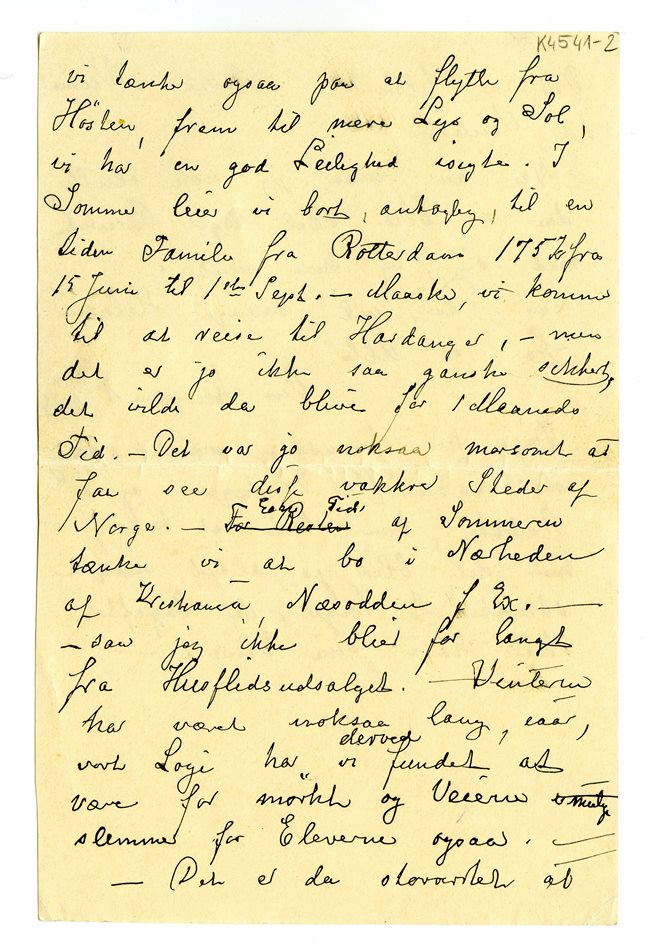 K4541-2
vi tænke ogsaa paa at flytte fra
Hösten, frem til mere Lys og Sol,
vi har en god Leilighed isigte. I
Somme leier vi bort, antagleg, til en
liden Familie fra Rotterdam 175 Kr fra
15 Juni til 1ste Sept. – Maaske, vi komme
til at reise til Hardanger, – men
det er jo ikke saa ganske sikkert,
det vilde da blive for 1 Maaneds
Tid. – Det var jo noksaa morsomt at
faa see disse vakkre Steder af
Norge. – For Resten Tid af Sommeren
tænke vi at bo i Nærheden
af Kristiania, Næsodden f Ex. –
– saa jeg ikke blier for langt
fra Husflidsudsalget. – Vinteren
har været noksaa lang, iaar,
vort Logi har vi derved fundet at
være for mörkt og Veiene
slemme for Eleverne ogsaa. –
– Det er da storartet at